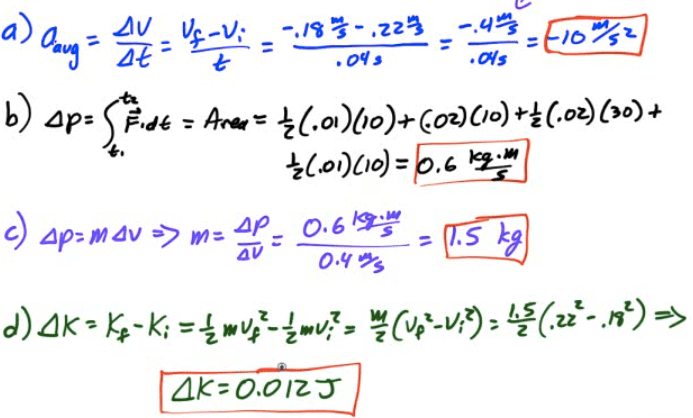 a) a_avg = ΔV/Δt = (V_f - V_i)/t = (-.18 m/s - .22 m/s)/.04s = (-.4 m/s)/.04s = -10 m/s²
b) Δp = ∫_{t₁}^{t₂} F⃗·dt = Area = ½(.01)(10) + (.02)(10) + ½(.02)(30) +
½(.01)(10) = 0.6 kg·m/s
c) Δp = mΔv => m = Δp/Δv = (0.6 kg·m/s)/(0.4 m/s) = 1.5 kg
d) ΔK = K_f - K_i = ½mv_f² - ½mv_i² = m/2(v_f² - v_i²) = 1.5/2(.22² - .18²) =>
ΔK = 0.012 J